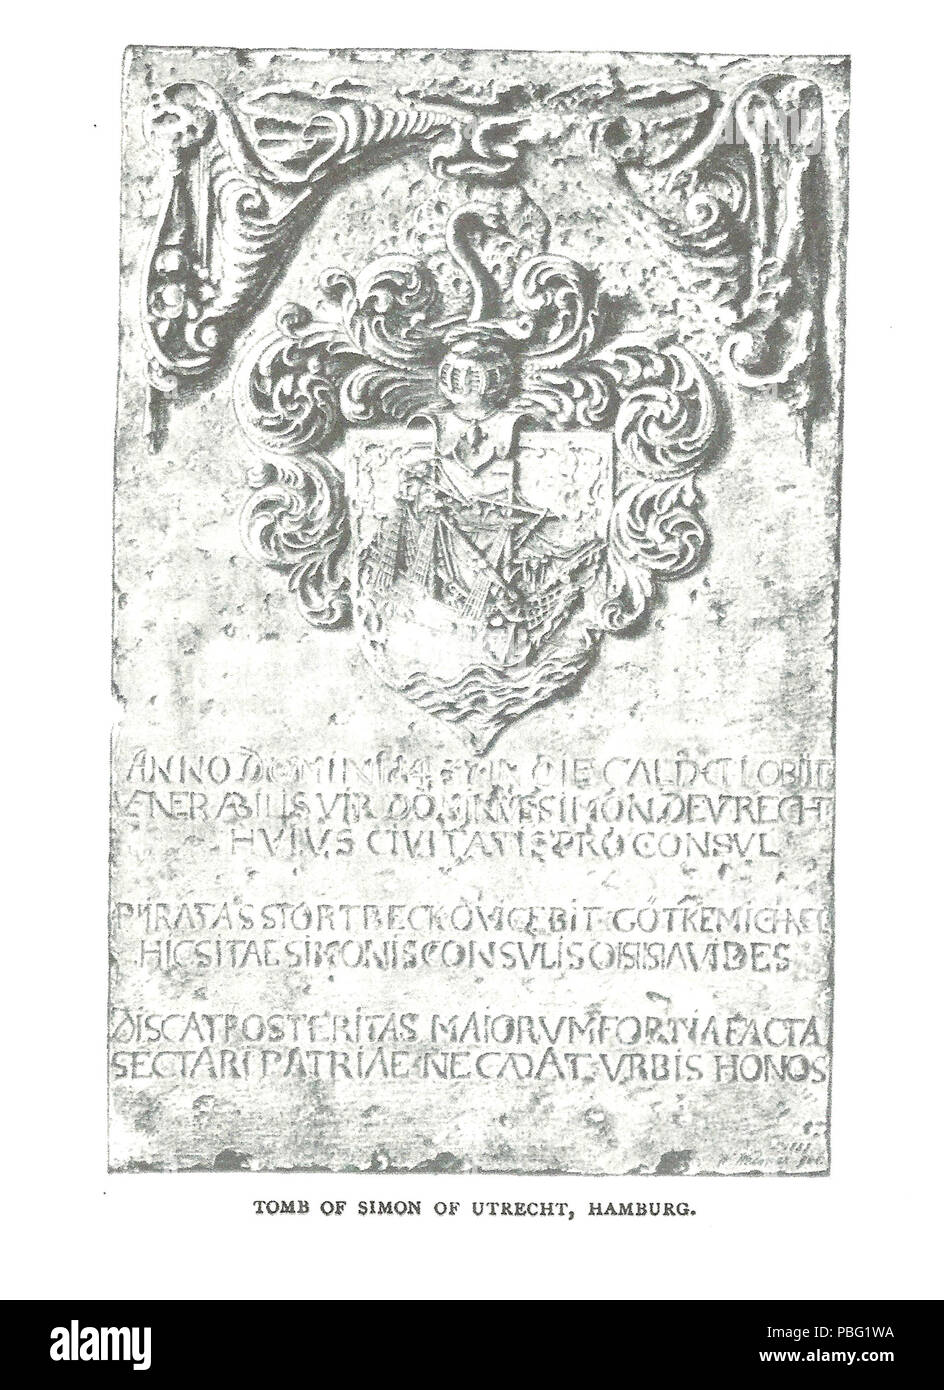 ANNO DOMINI 1437 IN DIE CAL OCT OBIIT
VENERABILIS VIR DOMINVS SIMON DE VRECHT
HVIVS CIVITATIS PRO CONSVL
PYRATAS STORTBECK O VICEBIT GÖTKE MICHAEL
HIC SITAE SIMONIS CONSVLIS VIDES
DISCAT POSTERITAS MAIORVM FORTIA FACTA
SECTARI PATRIAE NE CADAT VRBIS HONOS
TOMB OF SIMON OF UTRECHT, HAMBURG.
alamy
alamy
Image ID: PBG1WA
www.alamy.com